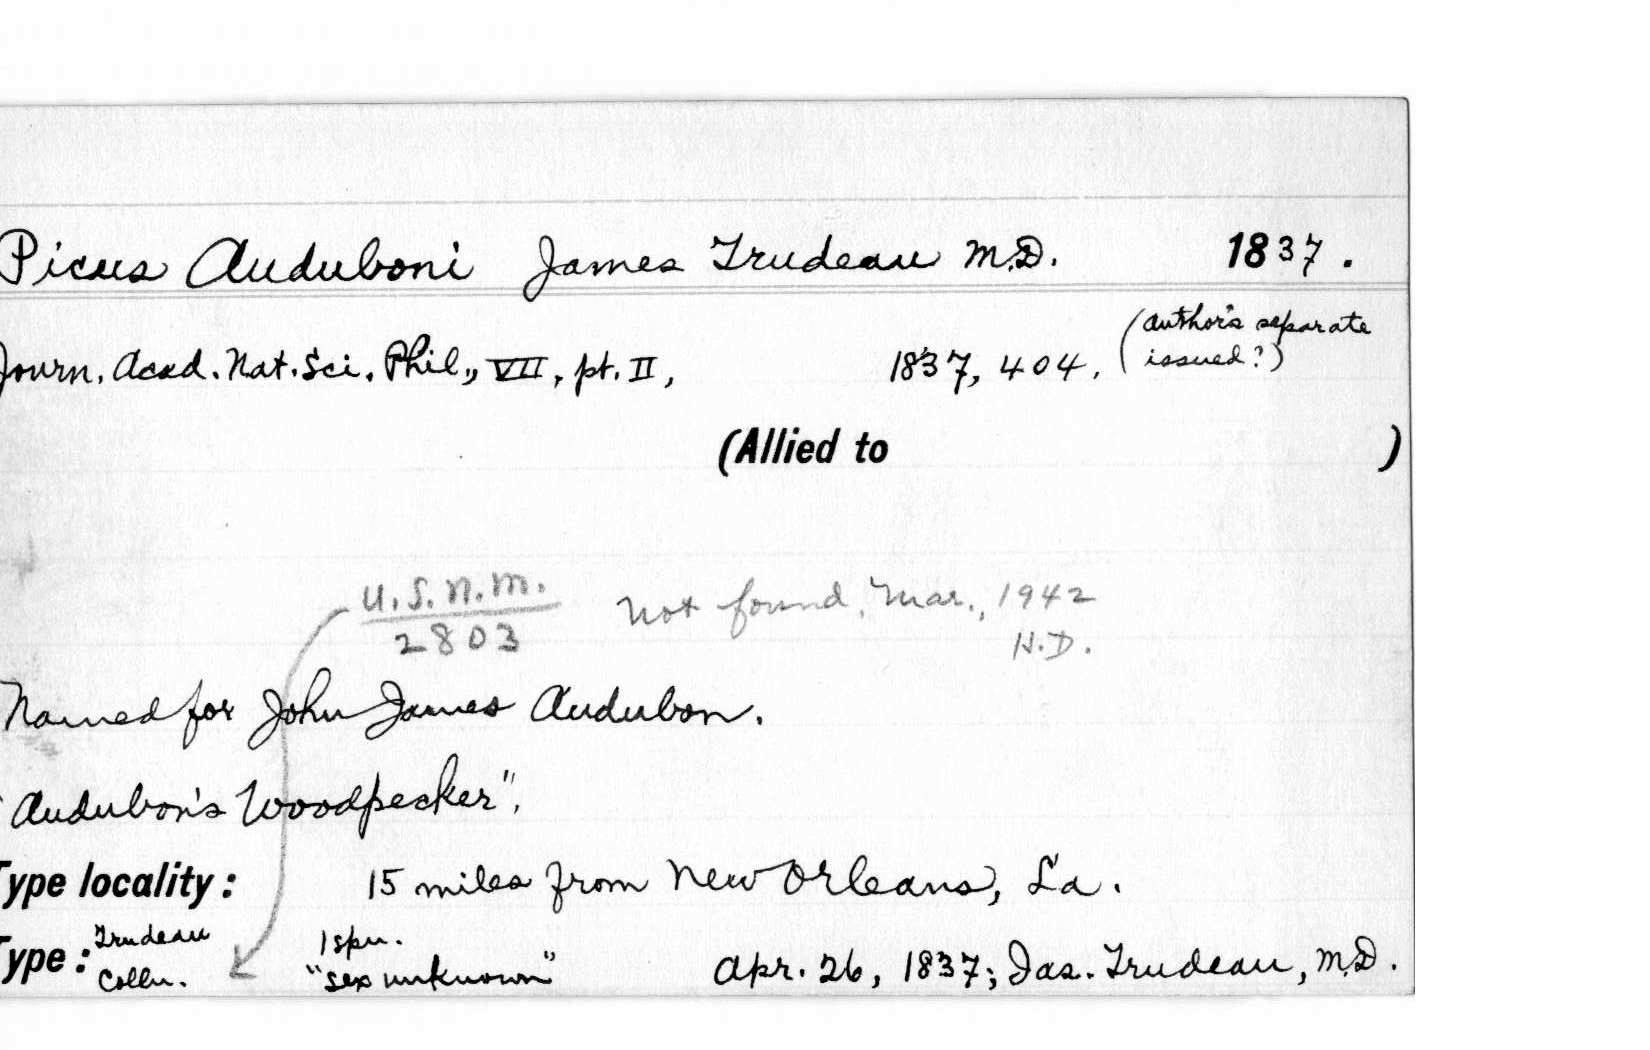 Picus Auduboni James Trudeau M.D. 1837.
(Author's separate
Journ. Acad. Nat. Sci. Phil., VII, pt. II, 1837, 404. issued?)
(Allied to )
U.S.N.M. Not found, Mar., 1942
2803 H.D.
Named for John James Audubon.
"Audubon's Woodpecker".
Type locality: 15 miles from New Orleans, La.
Type: Trudeau 1 spn.
Colln. "sex unknown" Apr. 26, 1837; Jas. Trudeau, M.D.